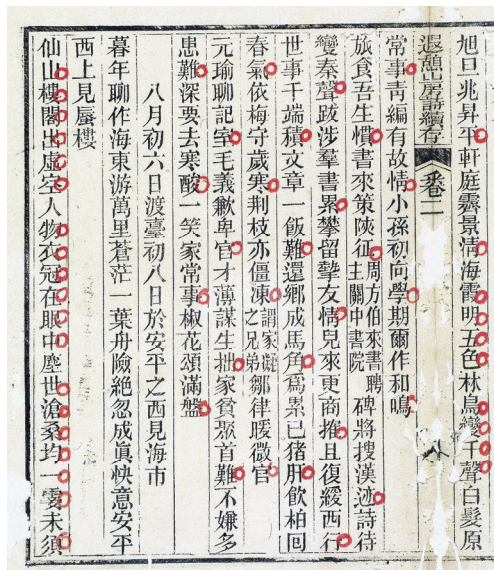 旭日兆昇平軒庭霽景淸海霞明五色林鳥變千聲白髮原
退憩山房詩續存 卷二 八
常事靑編有故情小孫初向學期爾作和鳴
旅食吾生慣書來策陝征周方伯來書聘主關中書院碑將搜漢迹詩待
變秦聲跋涉羣書累攀留摯友情兒來更商搉且復緩西行
世事千端積文章一飯難還鄕成馬角爲累已猪肝飮柏回
春氣依梅守歲寒荆枝亦僵凍謂家礙之兄弟鄒律暖微官
元瑜聊記室毛義歉卑官才薄謀生拙家貧聚首難不嫌多
患難深要去寒酸一笑家常事椒花頌滿盤
八月初六日渡臺初八日於安平之西見海市
暮年聊作海東游萬里蒼茫一葉舟險絕忽成眞快意安平
西上見蜃樓
仙山樓閣出虛空人物衣冠在眼中塵世滄桑均一霎未須